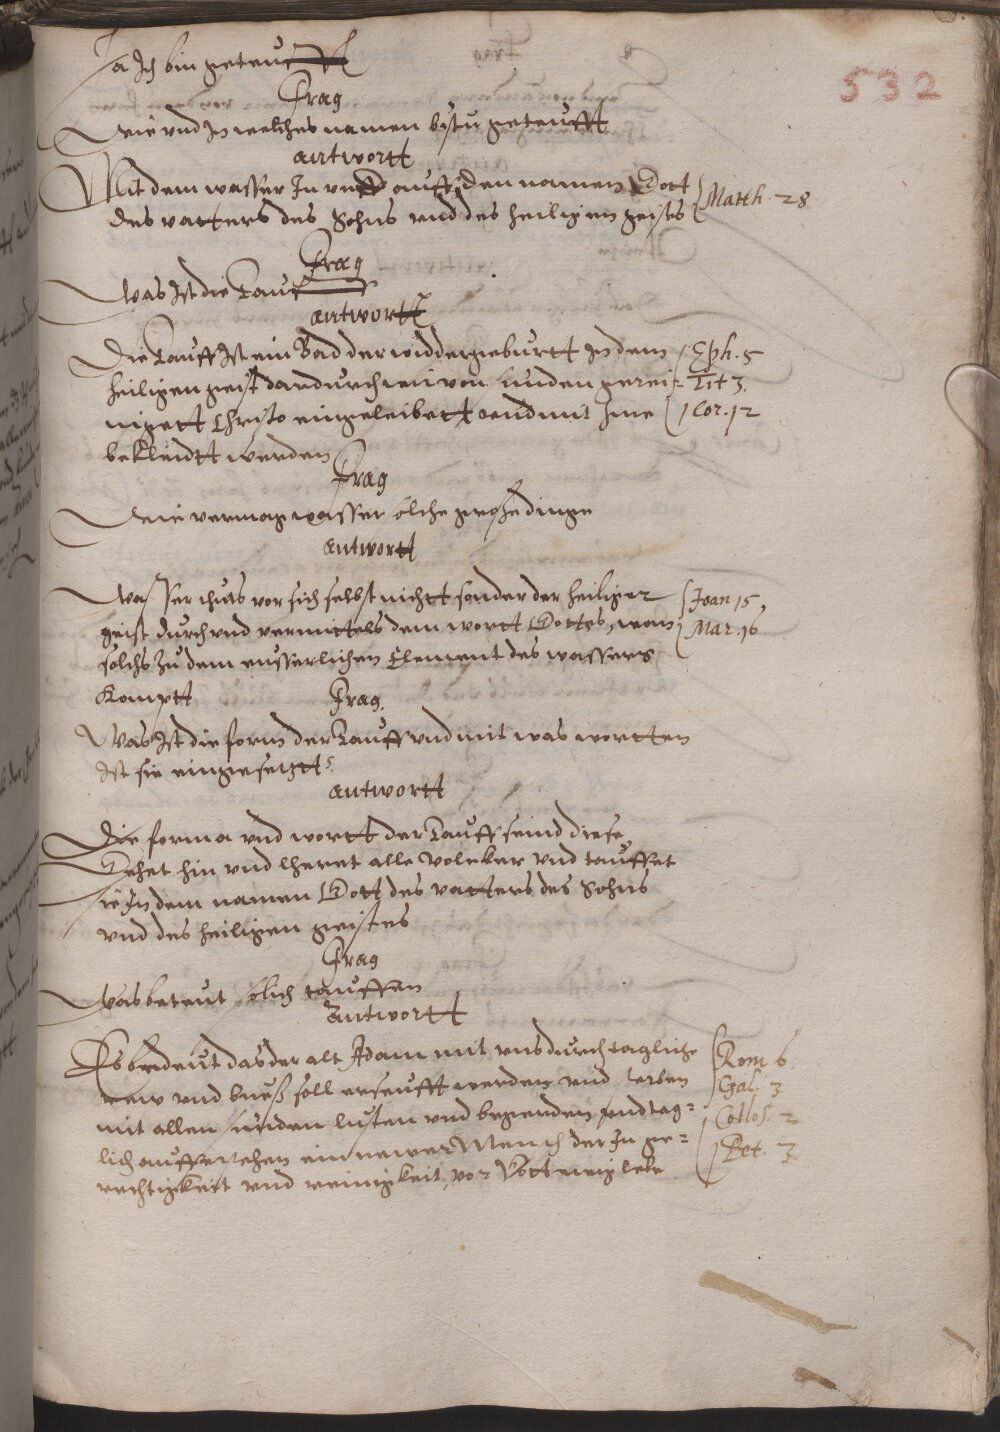 532
Ja Ich bin geteufft
Frag
Wie vnd In welches namen bistu geteufft
antwortt
Mit dem wasser In vnd auff den namen Gott Matth. 28
des vatters des Sohns vnd des heiligen geists
Frag
Was Ist die Tauff
antwortt
Die Tauff Ist ein Bad der widdergeburtt In dem Eph. 5
heiligen geist dardurch wir von sunden gerei= Tit 3.
nigett Christo eingeleibett vnd mit Ime 1 Cor. 12
bekleidtt werden
Frag
Wie vermag wasser solche grosse dinge
antwortt
Wasser thuts vor sich selbst nichtt sonder der heilige Joan 15,
geist durch vnd vermittels dem wortt Gottes, wan Mar. 16
solchs zu dem eusserlichen Element des wassers
Komptt
Frag.
Was Ist die form der Tauff vnd mit was wortten
Ist sie eingesetztt
antwortt
Die forma vnd wortt der Tauff seind diese
Gehet hin vnd lheret alle volcker vnd tauffet
sie In dem namen Gott des vatters des Sohns
vnd des heiligen geistes
Frag
Was beteut solich tauffen
Antwortt
Es bedeut das der alt Adam mit vns durch taglige Rom 6
rew vnd bueß soll erseufft werden vnd sterben Gal 3
mit allen sunden lusten vnd begirden vnd tag= Collos. 2
lich aufferstehen ein newer Mensch der In ge= 1 Pet. 3
rechtigkeit vnd reinigkeit vor Gott ewig lebe